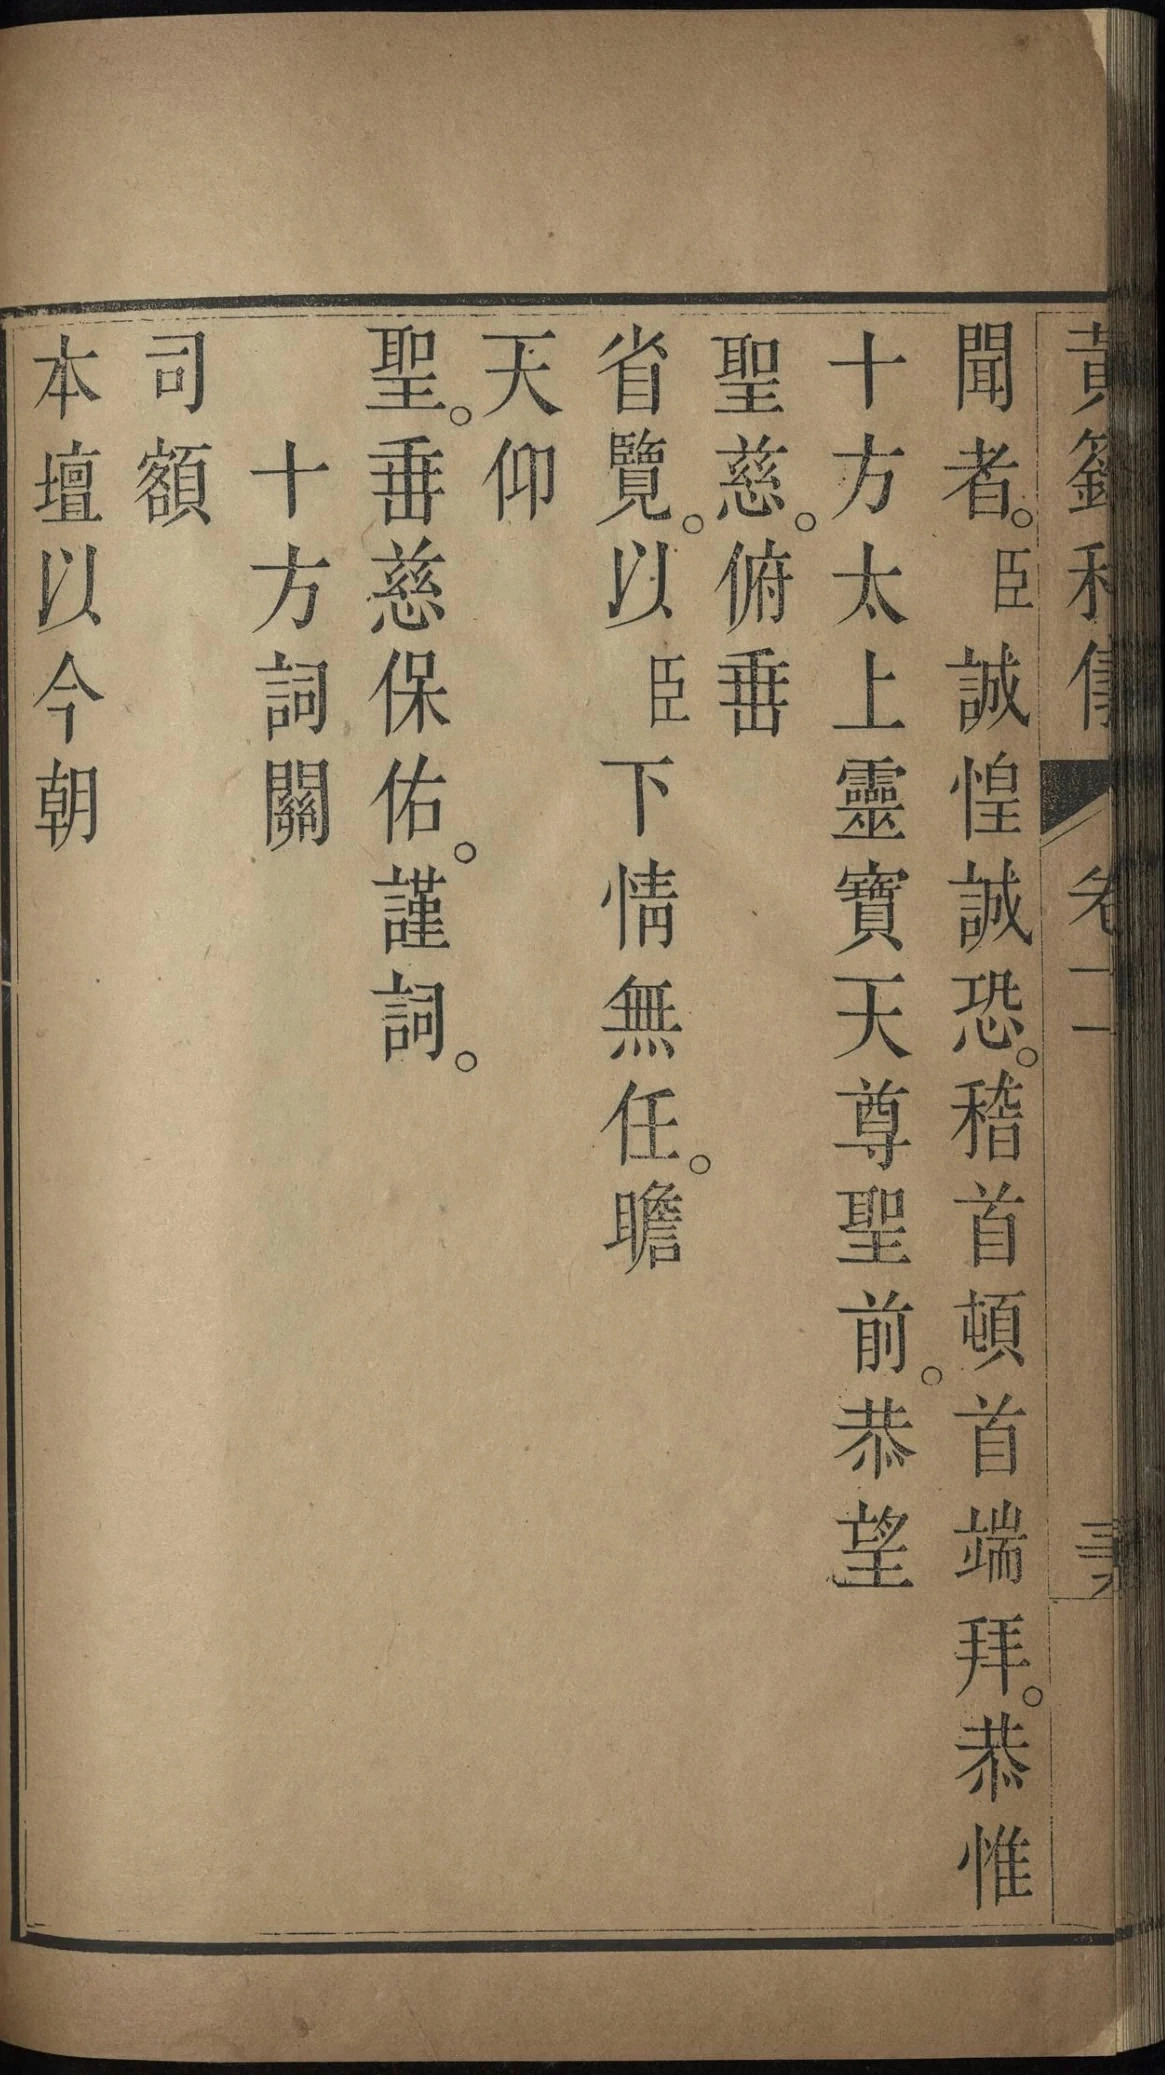 黃籙科儀 卷十一
聞者。臣誠惶誠恐。稽首頓首端拜。恭惟
十方太上靈寶天尊聖前。恭望
聖慈。俯垂
省覽。以臣下情無任。瞻
天仰
聖。垂慈保佑。謹詞。
十方詞關
司額
本壇以今朝